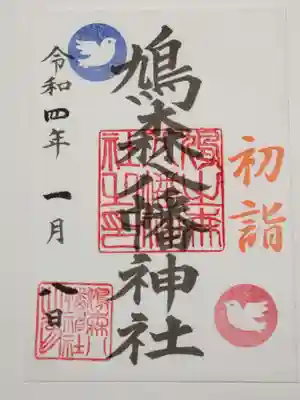 初詣
鳩森八幡神社
令和四年 一月 八日